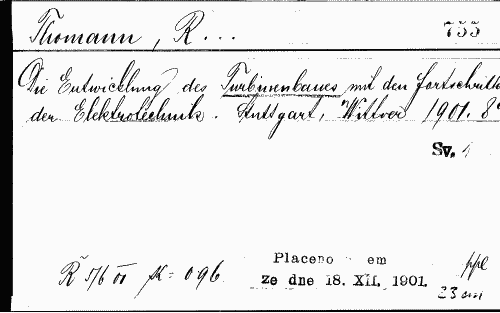 Thomann, R... 755
Die Entwicklung des Turbinenbaues mit den Fortschritte
der Elektrotechnik. Stuttgart, Wittver 1901. 8°
Sv. 1
Placeno em
R 5/6 01 pk= 0 96 ze dne 18. XII. 1901. ppl
23 cm